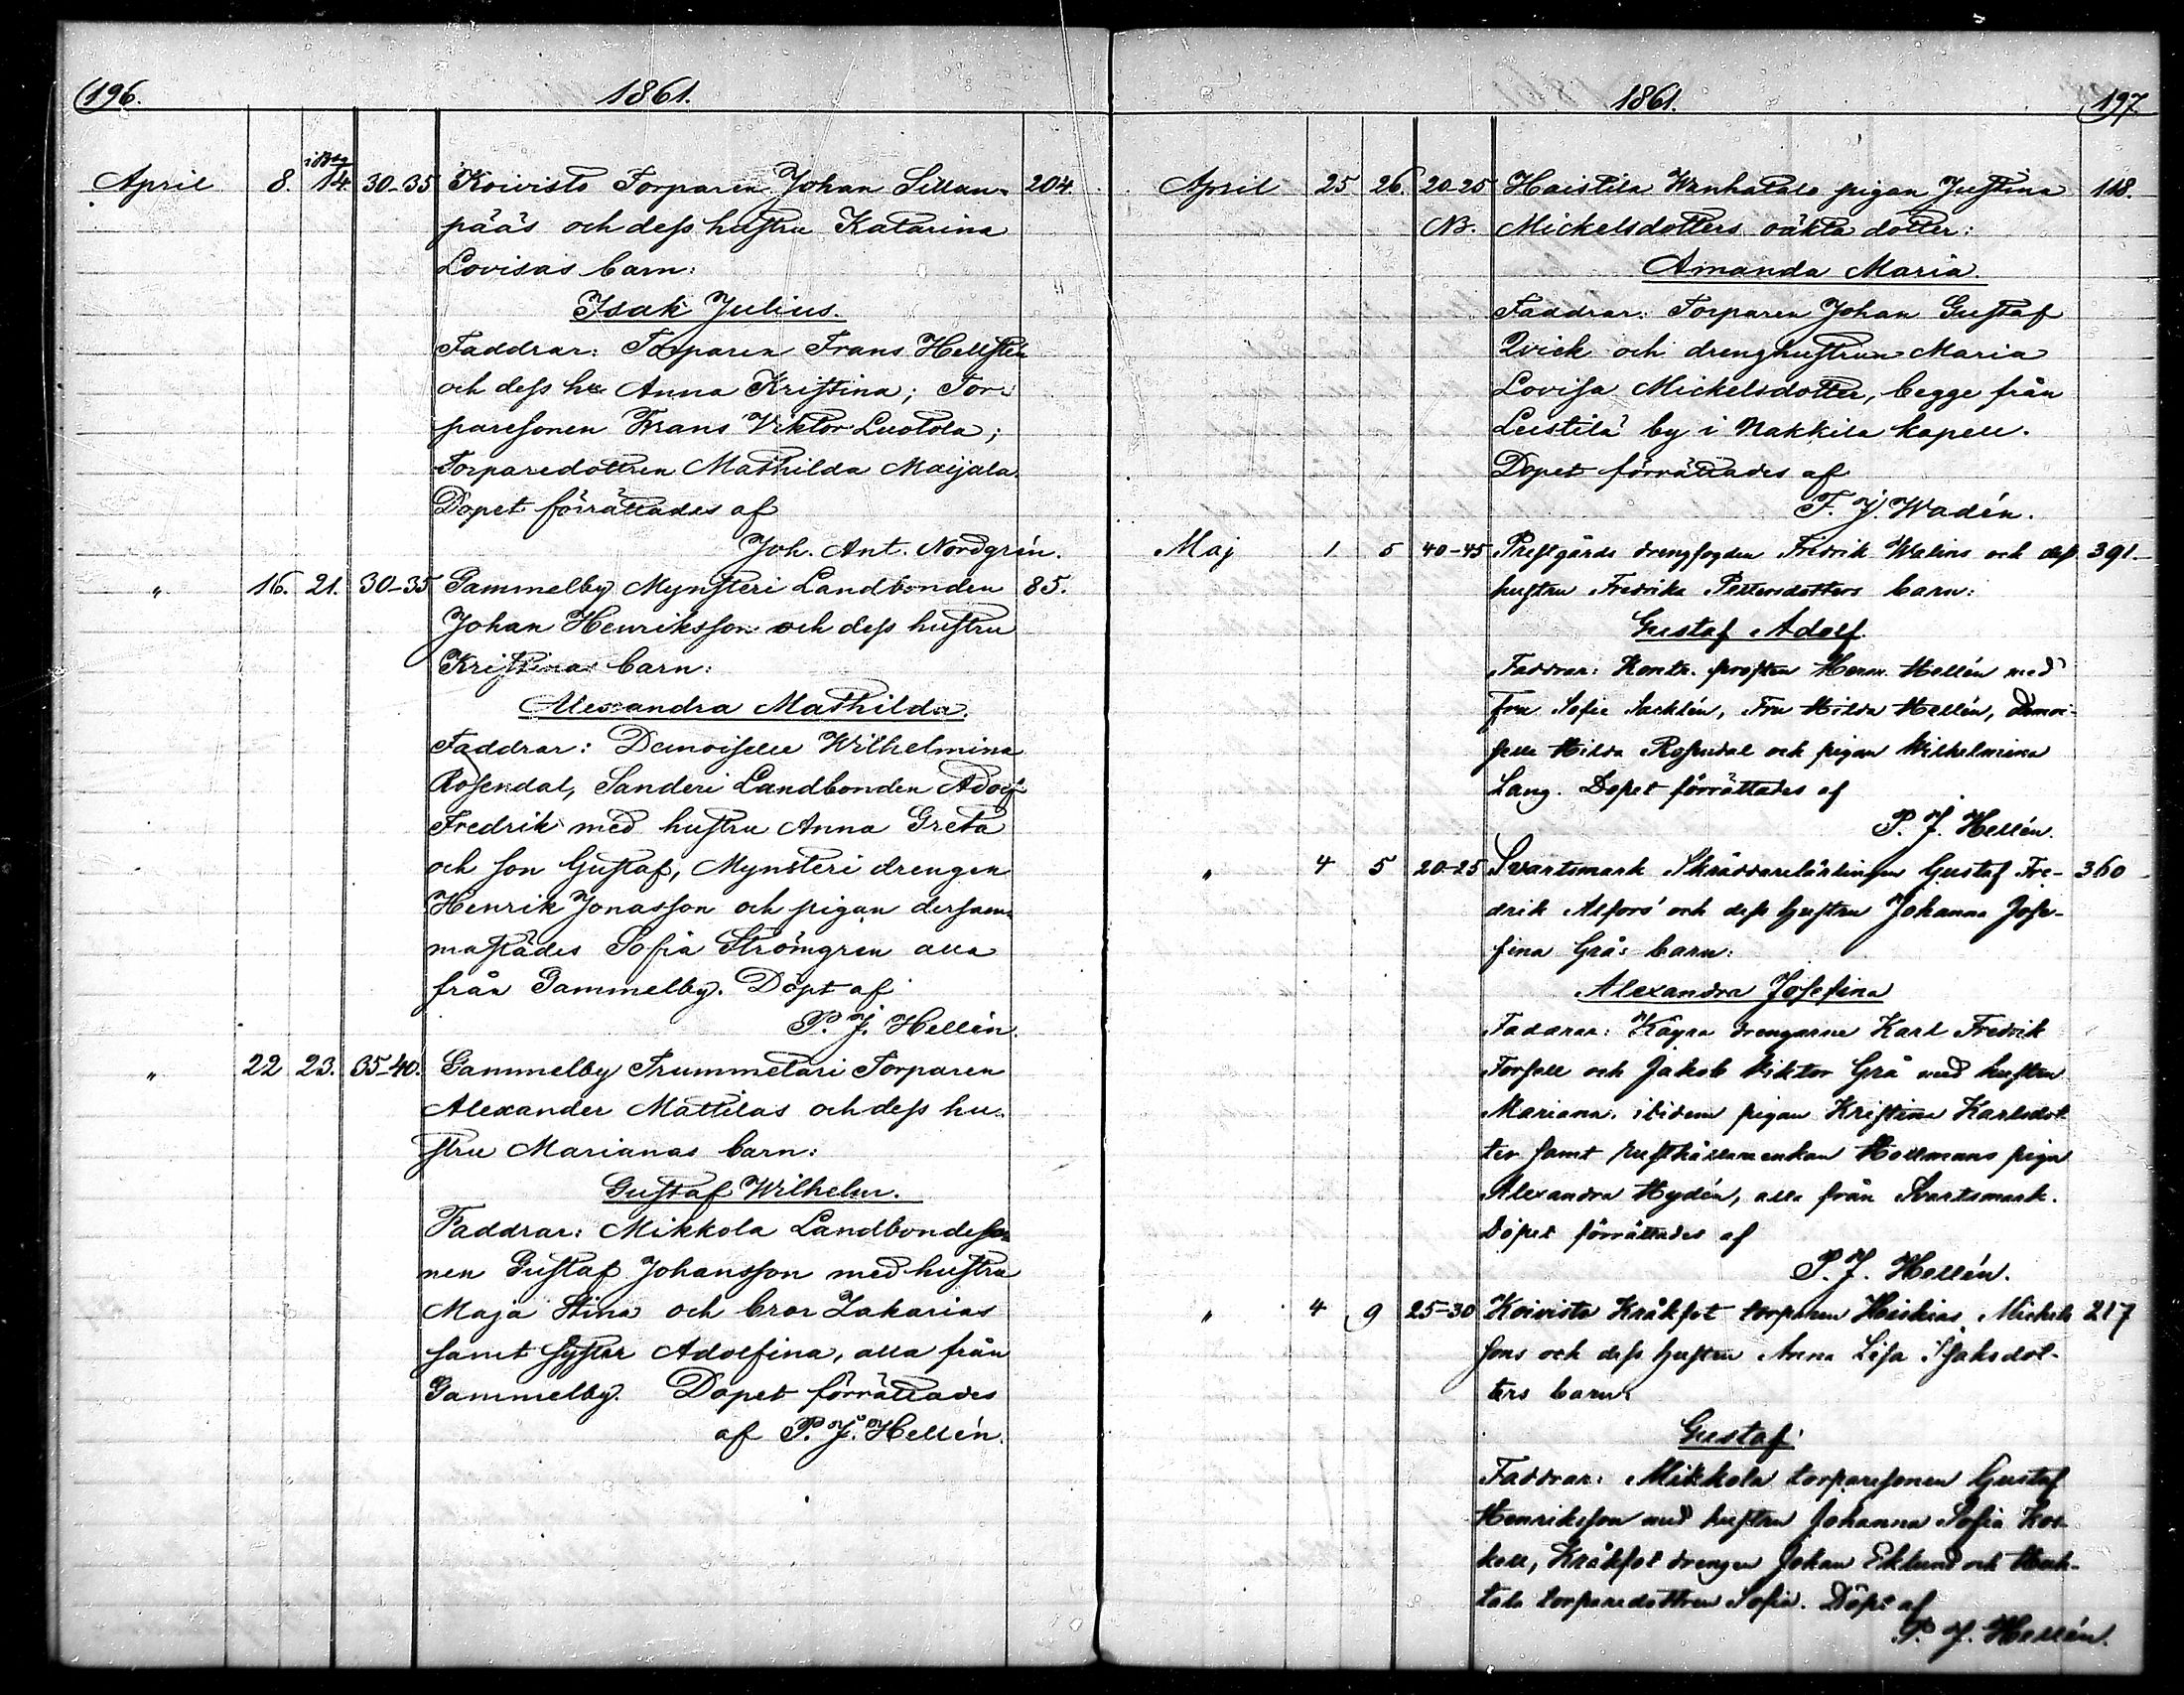 196.
1861.
April 8. 14. 30-35 Koivisto Torparen Johan Sillan-
204.
pääs och dess hustru Katarina
Lovisas barn:
Isak Julius.
Faddrar: Torparen Frans Hellsten
och dess h:u Anna Kristina; Tor-
paresonen Frans Viktor Luotola;
Torparedottren Mathilda Maijala.
Dopet förrättades af
Joh. Ant. Nordgrén.
" 16. 21. 30-35 Gammelby Mynsteri Landbonden 85.
Johan Henriksson och dess hustru
Kristinas barn:
Alexandra Mathilda.
Faddrar: Demoiselle Wilhelmina
Rosendal, Sanderi Landbonden Adolf
Fredrik med hustru Anna Greta
och son Gustaf, Mynsteri drengen
Henrik Jonasson och pigan dersam-
mastädes Sofia Strömgren alla
från Gammelby. Döpt af
P. J. Hellén.
" 22 23. 35-40. Gammelby Trummetari Torparen
Alexander Mattilas och dess hu-
stru Marianas barn:
Gustaf Wilhelm.
Faddrar: Mikkola Landbondeso-
nen Gustaf Johansson med hustru
Maja Stina och bror Zakarias
samt syster Adolfina, alla från
Gammelby. Dopet förrättades
af P. J. Hellén.
1861.
197.
April 25 26. 20-25 Haistila Wanhatalo pigan Justina 148.
NB. Mickelsdotters oäkta dotter:
Amanda Maria.
Faddrar: Torparen Johan Gustaf
Qvick och drenghustrun Maria
Lovisa Mickelsdotter, begge från
Leistilä by i Nakkila kapell.
Dopet förrättades af
F. J. Wadén.
Maj 1 5 40-45 Prestgårds drengfogden Fredrik Walins och dess 391.
hustru Fredrika Pettersdotters barn:
Gustaf Adolf.
Faddrar: Kontr. prosten Herm. Hellén med
Fru Sofie Sacklén, Fru Hilda Hellén, Demoi-
selle Hilda Rosendal och pigan Wilhelmina
Lang. Dopet förrättades af
P. J. Hellén.
" 4 5 20-25 Svartsmark Skräddarelärlingen Gustaf Fre- 360
drik Alfors' och dess hustru Johanna Jose-
fina Grås barn:
Alexandra Josefina
Faddrar: Kägra drengarne Karl Fredrik
Forsell och Jakob Viktor Grå med hustru
Mariana. ibidem pigan Kristina Karlsdot-
ter samt rusthållareenkan Hollmans piga
Alexandra Hydén, alla från Svartsmark.
Döpet förrättades af
P. J. Hellén.
" 4 9 25-30 Koivisto Kråkfot torparen Hiskias Mickels- 217
sons och dess hustru Anna Lisa Isaksdot-
ters barn:
Gustaf
Faddrar: Mikkola torparesonen Gustaf
Henriksson med hustru Johanna Sofia Kos-
kell, Kråkfot drengen Johan Eklund och
torparedottren Sofia. Döpt af
P. J. Hellén.